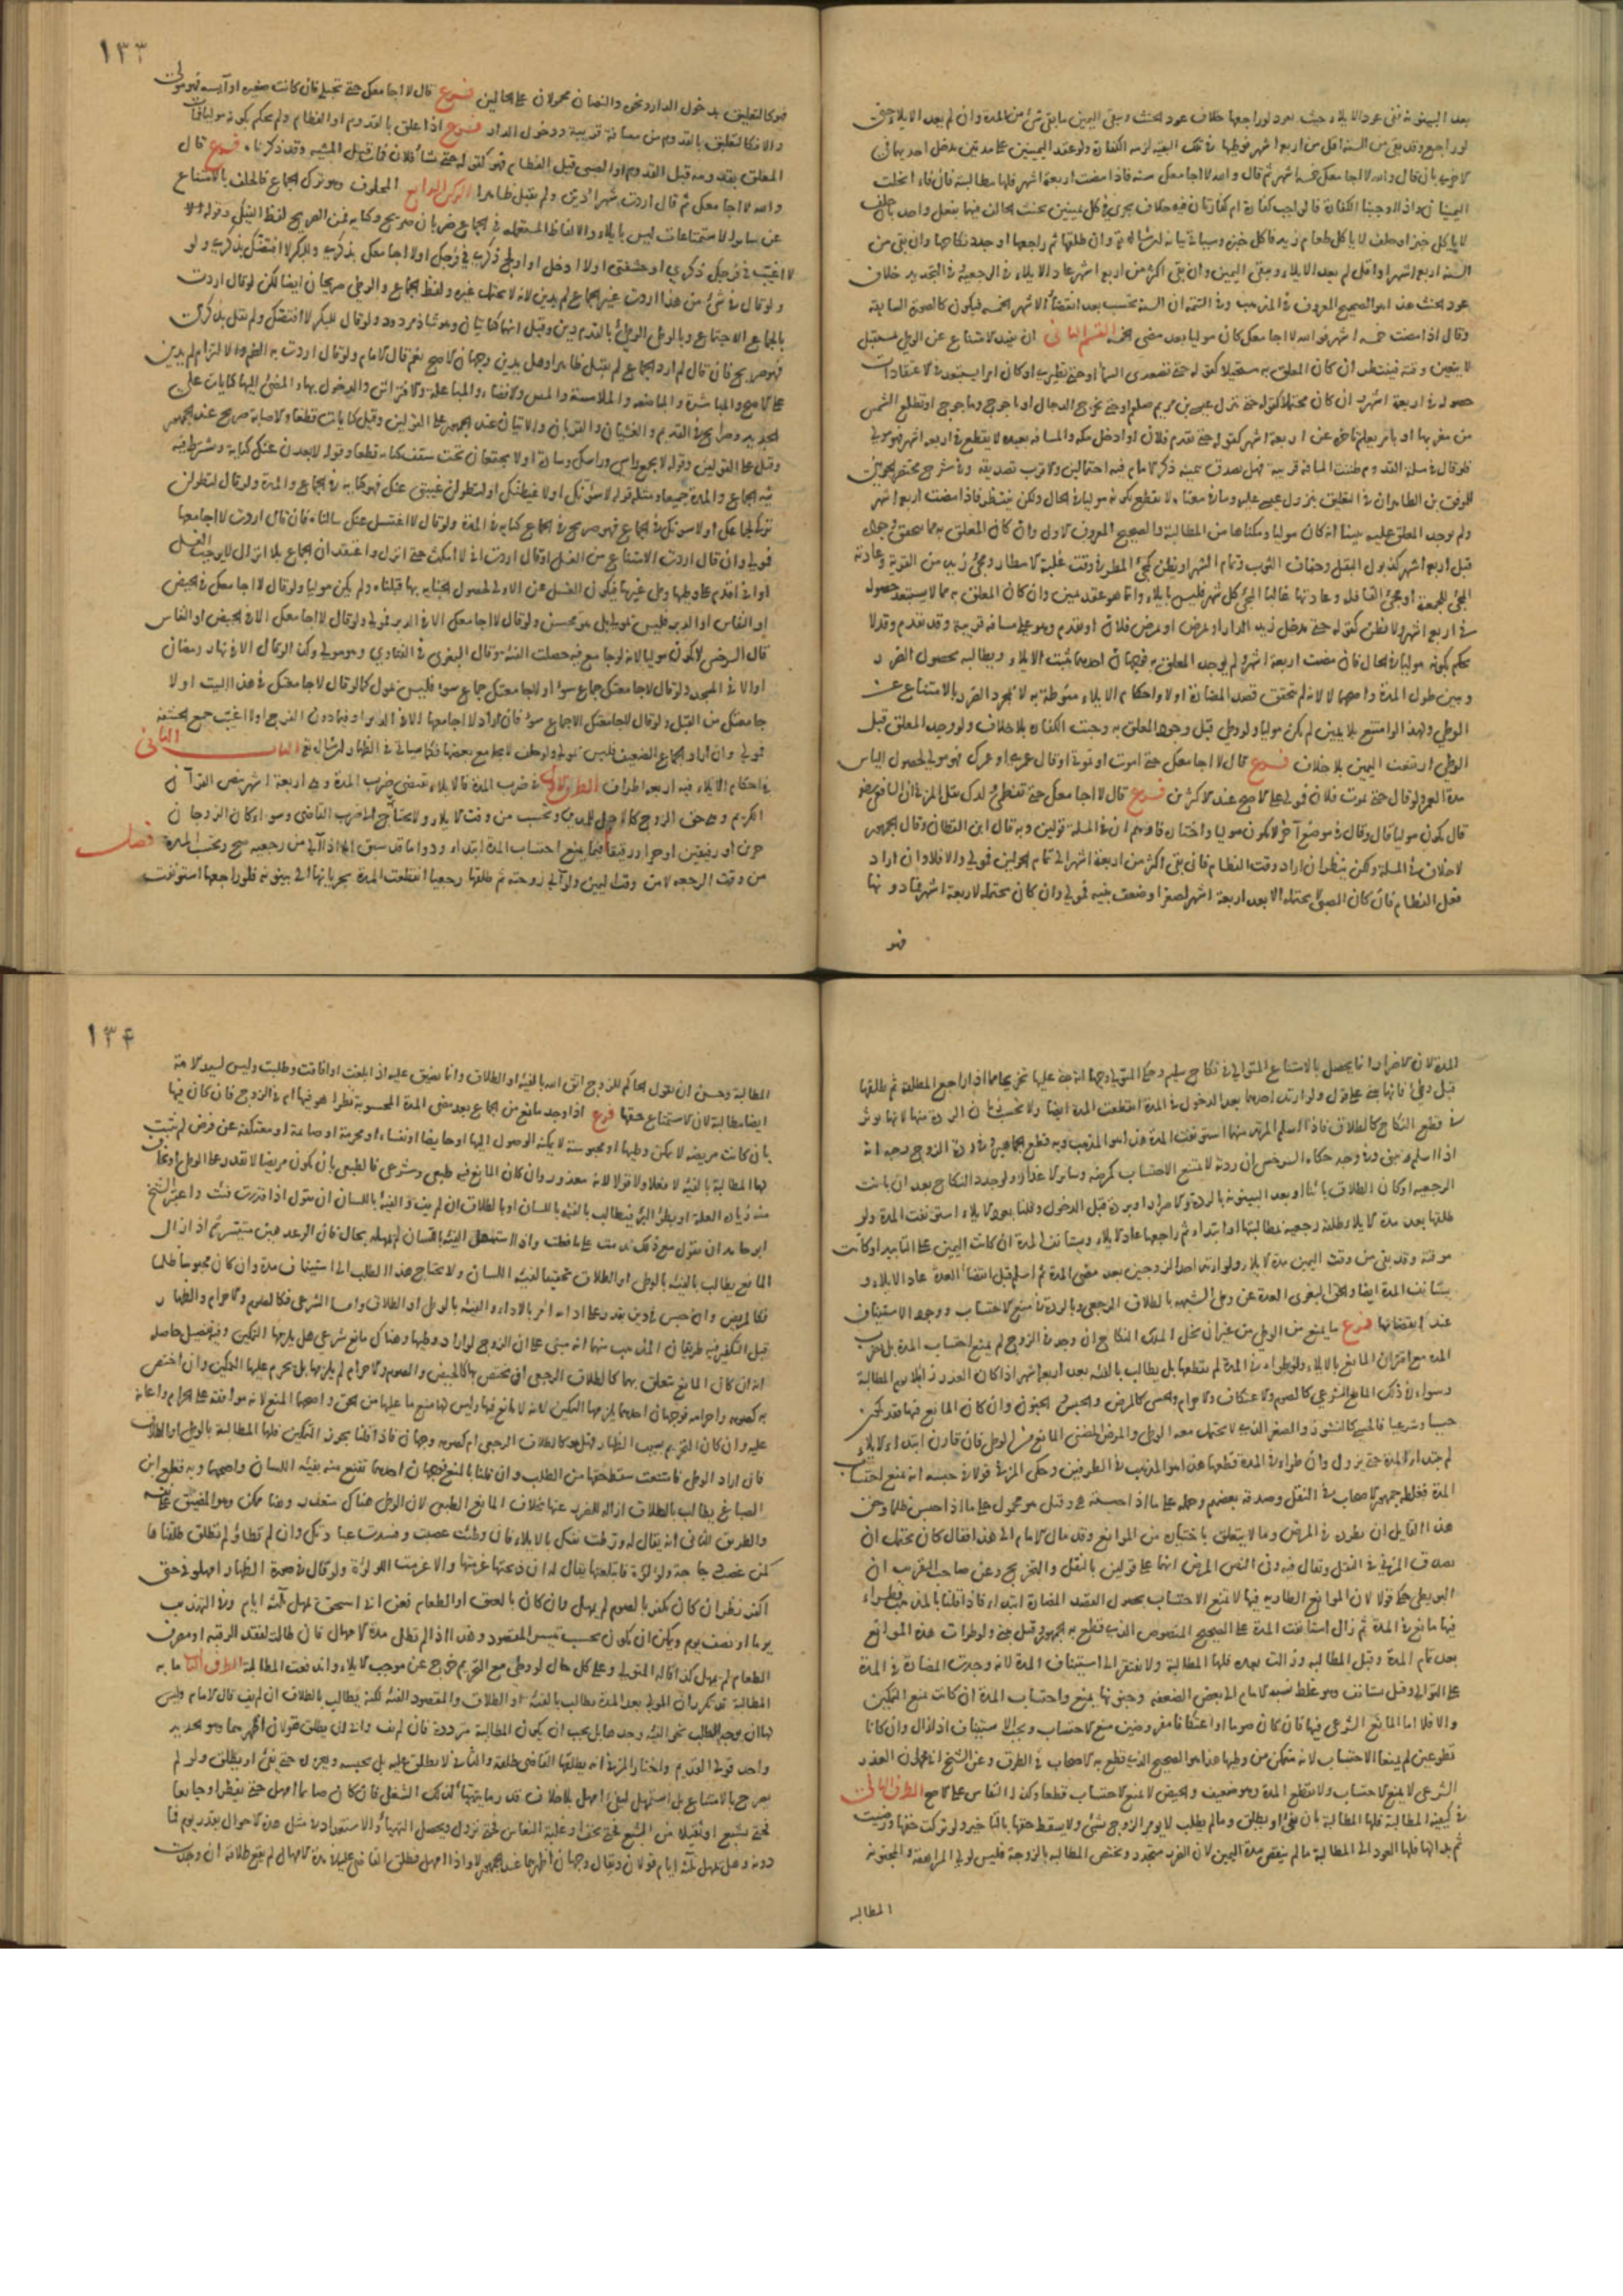 بعد البينونة ففي عود الايلاء وحيث يعود لو راجعها خلاف عود الحنث وتبقى اليمين ما بقي شيء من المدة وان لم يعد الايلاء حتى
لو راجع وقد بقي من السنة اقل من اربعة اشهر فوطيها في تلك البقية لزمه الكفارة ولو عقد اليمينين على مدتين تدخل احديهما في
الاخرى بان قال والله لا اجامعك خمسة اشهر ثم قال والله لا اجامعك سنة فاذا مضت اربعة اشهر فلها مطالبته فان فاء انحلت
اليمينان واذا اوجبنا الكفارة فالواجب كفارة ام كفارتان فيه خلاف يجري في كل يمينين يحنث الحالف فيهما بفعل واحد بان حلف
لا ياكل خبزا وحلف لا ياكل طعام زيد فاكل خبزه وسياتي بيانه ان شاء الله تعالى وان طلقها ثم راجعها او جدد نكاحها وان بقي من
السنة اربعة اشهر او اقل لم يعد الايلاء وتبقى اليمين وان بقي اكثر من اربعة اشهر عاد الايلاء في الرجعية وفي التجديد خلاف
عود الحنث هذا هو الصحيح المعروف في المذهب وفي التتمة ان السنة تحسب بعد انقضاء الاشهر الخمسة فيكون كالصورة السابقة
وقال اذا مضت خمسة اشهر فوالله لا اجامعك كان موليا بعد مضي الخمسة القسم الثاني ان يقيد الامتناع عن الوطي بمستقبل
لا يتعين وقته فينظر ان كان المعلق به مستحيلا كقوله حتى تصعدي السماء او حتى تطيري او كان امرا يستبعد في الاعتقادات
حصوله في اربعة اشهر وان كان محتملا كقوله حتى ينزل عيسى بن مريم صلعم او حتى يخرج الدجال او ياجوج وماجوج او تطلع الشمس
من مغربها او بامر يعلم تاخره عن اربعة اشهر كقوله حتى يقدم فلان او ادخل مكة والمسافة بعيدة لا تقطع في اربعة اشهر فهو مولي
فلو قال في مسئلة القدوم ظننت المسافة قريبة فهل يصدق بيمينه ذكر الامام فيه احتمالين والاقرب تصديقه وفي شرح مختصر الجويني
للموفق بن الطاهر ان في التعليق بنزول عيسى عليه السلام وما في معناه لا يقطع بكونه موليا في الحال ولكن ينتظر فاذا مضت اربعة اشهر
ولم يوجد المعلق عليه تبينا انه كان موليا ومكناها من المطالبة والصحيح المعروف الاول وان كان المعلق به مما يتحقق وجوده
قبل اربعة اشهر كذبول البقل وجفاف الثوب وتمام الشهر او يظن كمجيء المطر في وقت غلبة الامطار ومجيء زيد من القرية وعادته
المجيء للجمعة او مجيء القافلة وعادتها غالبا المجيء كل شهر فليس بايلاء وانما هو عقد يمين وان كان المعلق به مما لا يستبعد حصوله
في اربعة اشهر ولا يظن كقوله حتى يدخل زيد الدار او امرض او يمرض فلان او يقدم وهو على مسافة قريبة وقد يقدم وقد لا
يحكم بكونه موليا في الحال فان مضت اربعة اشهر ولم يوجد المعلق به فوجهان احدهما يثبت الايلاء ويطالب لحصول الضرر
وتبين طول المدة واصحهما لا لانه لم يتحقق قصد المضارة اولا واحكام الايلاء منوطة به لا بمجرد الضرر بالامتناع عن
الوطي ولهذا لو امتنع بلا يمين لم يكن موليا ولو وطي قبل وجود المعلق به وجبت الكفارة بلا خلاف ولو وجد المعلق قبل
الوطي ارتفعت اليمين بلا خلاف فرع قال لا اجامعك حتى اموت او تموتي او قال عمري او عمرك فهو مولي لحصول الياس
مدة العمر ولو قال حتى يموت فلان فمولي على الاصح عند الاكثرين فرع قال لا اجامعك حتى تفطمي ولدك نقل المزني ان الشافعي رضه
قال يكون موليا قال وقال في موضع اخر لا يكون موليا واختاره فاوهم ان في المسئلة قولين وبه قال ابن القطان وقال الجمهور
لا خلاف في المسئلة ولكن ينظر ان اراد وقت الفطام فان بقي اكثر من اربعة اشهر الى تمام الحولين فمولي والا فلا وان اراد
فعل الفطام فان كان الصبي لا يحتمله الا بعد اربعة اشهر لصغر او ضعف بنية فمولي وان كان يحتمله لاربعة اشهر فما دونها
فهو
١٣٣
فهو كالتعليق بدخول الدار ونحوه والنصان محمولان على الحالين فرع قال لا اجامعك حتى تحبلي فان كانت صغيرة او آيسة فهو مولي
والا فكالتعليق بالقدوم من مسافة قريبة ودخول الدار فرع اذا علق بالقدوم او الفطام ولم يحكم بكونه موليا فمات
المعلق بقدومه قبل القدوم او الصبي قبل الفطام فهو كقوله حتى يشاء فلان فمات قبل المشية وقد ذكرناه فرع قال
والله لا اجامعك ثم قال اردت شهرا دين ولم يقبل ظاهرا الركن الرابع المحلوف وهو ترك الجماع فالحلف بالامتناع
عن سائر الاستمتاعات ليس بايلاء والالفاظ المستعملة في الجماع ضربان صريح وكناية فمن الصريح لفظ النيك وقوله لا
لا اغيب في فرجك ذكري او حشفتي او لا ادخل او اولج ذكري في فرجك او لا اجامعك بذكري وللبكر لا افتضك بذكري ولو
ولو قال في شيء من هذا اردت غير الجماع لم يدين لانه لا يحتمل غيره ولفظ الجماع والوطي صريحان ايضا لكن لو قال اردت
بالجماع الاجتماع وبالوطي الوطي بالقدم دين وقيل انهما كنايتان وهو شاذ مردود ولو قال للبكر لا افتضك ولم يقل بذكري
فهو صريح فان قال لم ارد الجماع لم يقبل ظاهرا وهل يدين وجهان الاصح نعم قال الامام ولو قال اردت به الضم والالتزام لم يدين
على الاصح والمباشرة والمباضعة والملامسة والمس والافضاء والمباعلة والافتراش والدخول بها والمضي اليها كنايات على
الجديد وصرايح في القديم والغشيان والقربان والاتيان عند الجمهور على القولين وقيل كنايات قطعا والاصابة صريح عند الجمهور
وقيل على القولين وقوله لا يجمع راسي وراسك وسادة او لا يجتمعان تحت سقف كناية قطعا وقوله لابعدن عنك كناية ويشترط فيه
نية الجماع والمدة جميعا ومثله قوله لاسوءنك او لاغيظنك او لتطولن غيبتي عنك فهو كناية في الجماع والمدة ولو قال لتطولن
تركي لجماعك او لاسوءنك في الجماع فهو صريح في الجماع كناية في المدة ولو قال لا اغتسل عنك سالناه فان قال اردت لا اجامعها
فمولي وان قال اردت الامتناع من الغسل او قال اردت اني لا امكث حتى انزل واعتقد ان الجماع بلا انزال لا يوجب الغسل
او اني اقدم على وطيها وطي غيرها فيكون الغسل عن الاولى لحصول الجنابة بها قبلناه ولم يكن موليا ولو قال لا اجامعك في الحيض
او النفاس او الدبر فليس بمولي بل هو محسن ولو قال لا اجامعك الا في الدبر فمولي ولو قال لا اجامعك الا في الحيض او النفاس
قال السرخسي لا يكون موليا لانه لو جامع فيه حصلت الفيئة وقال البغوي في الفتاوي هو مولي وكذا لو قال الا في نهار رمضان
او الا في المسجد ولو قال لا جامعتك جماع سوء او لاجامعنك جماع سوء فليس بمول كما لو قال لا جامعتك في هذا البيت او لا
جامعتك من القبل ولو قال لاجامعتك الا جماع سوء فان اراد لا اجامعها الا في الدبر او فيما دون الفرج او لا اغيب جميع الحشفة
فمولي وان اراد الجماع الضعيف فليس بمولي ولو حلف لا يجامع بعضها فكما سياتي في الظهار ان شاء الله تعالى الباب الثاني
في احكام الايلاء فيه اربعة اطراف الطرف الاول في ضرب المدة فالايلاء يقتضي ضرب المدة وهي اربعة اشهر بنص القرآن
الكريم وهي حق الزوج كالاجل للمدين وتحسب من وقت الايلاء ولا يحتاج الى ضرب القاضي وسواء كان الزوجان
حرين او رقيقين او حرا ورقيقا فصل فيما يمنع احتساب المدة ابتداء ودواما قد سبق انه اذا آلى من رجعية صح وتحسب المدة
من وقت الرجعة لا من وقت اليمين ولو آلى زوجته ثم طلقها رجعيا انقطعت المدة لجريانها الى بينونة فلو راجعها استونفت
المدة لان الاضرار انما يحصل بالامتناع المتوالي في نكاح سليم وحكى المتولي وجها انه يبنى عليها تخريجا مما اذا راجع المطلقة ثم طلقها
قبل وطيء فانها تبني على قول ولو ارتد احدهما بعد الدخول في المدة انقطعت المدة ايضا ولا يحتسب زمان الردة منها لانها توثر
في قطع النكاح كالطلاق فاذا اسلم المرتد منهما استونفت المدة هذا هو المذهب وبه قطع الجماهير وفي ردة الزوج وجه انه
اذا اسلم يبنى وفي وجه حكاه السرخسي ان ردته لا تمنع الاحتساب كمرضه وسائر الاعذار ولو جدد النكاح بعد ان بانت
الرجعية او كان الطلاق باينا او بعد البينونة بالردة والاصرار او بردة قبل الدخول وقلنا بعود الايلاء استونفت المدة ولو
طلقها بعد مدة الايلاء طلقة رجعية بمطالبتها او ابتداء ثم راجعها عاد الايلاء ويستانف المدة ان كانت اليمين على التابيد او كانت
موقتة وقد بقي من وقت اليمين مدة الايلاء ولو ارتد احد الزوجين بعد مضي المدة ثم اسلم قبل انقضاء العدة عاد الايلاء و
يستانف المدة ايضا والحق البغوي العدة عن وطي الشبهة بالطلاق الرجعي وبالردة في منع الاحتساب ووجوب الاستيناف
عند انقضائها فرع ما يمنع من الوطي من غير ان يخل بملك النكاح ان وجد في الزوج لم يمنع احتساب المدة بل تضرب
المدة مع اقتران المانع بالايلاء ولو طراء في المدة لم يقطعها بل يطالب بالفيئة بعد اربعة اشهر اذا كان العذر زائلا يوم المطالبة
وسواء في ذلك المانع الشرعي كالصوم والاعتكاف والاحرام والحسي كالمرض والحبس والجنون وان كان المانع فيها فقد يكون
حسيا وشرعيا فالحسي كالنشوز والصغر الذي لا يحتمل معه الوطي والمرض المضني المانع من الوطي فان قارن ابتداء الايلاء
لم تبتدا المدة حتى يزول وان طراء في المدة قطعها هذا هو المذهب في الطرفين وحكى المزني قولا في حبسه انه يمنع احتساب
المدة فغلطه جمهور الاصحاب في النقل وصدقه بعضهم وحمله على ما اذا حبسته هي وقيل هو محمول على ما اذا حبس ظلما وحق
هذا القايل ان يطرده في المرض وما لا يتعلق باختياره من الموانع وقد مال الامام الى هذا فقال كان يحتمل ان
يصدق المزني في النقل ويقال فيه وفي النص المرض انهما على قولين بالنقل والتخريج وعن صاحب التقريب ان
البويطي حكى قولا ان الموانع الطارية فيها لا تمنع الاحتساب لحصول القصد المضارة ابتداء فاذا قلنا بالمذهب فطراء
فيها مانع في المدة ثم زال استانفت المدة على الصحيح المنصوص الذي قطع به الجمهور وقيل تبنى ولو طرات هذه الموانع
بعد تمام المدة وقبل المطالبة وزالت بعده فلها المطالبة ولا يفتقر الى استيناف المدة لانه وجدت المضارة في المدة
على التوالي وقيل تستانف وهو غلط نسبه الامام الى بعض الضعفة وجنونها يمنع احتساب المدة ان كانت تمنع التمكين
والا فلا اما المانع الشرعي فيها فان كان صوما او اعتكافا مفروضين منع الاحتساب ويجب الاستيناف اذا زال وان كانا
تطوعين لم يمنعا الاحتساب لانه متمكن من وطيها هذا هو الصحيح الذي قطع به الاصحاب في الطرق وعن الشيخ ان العذر
الشرعي لا يمنع الاحتساب ولا يقطع المدة وهو ضعيف والحيض لا يمنع الاحتساب قطعا وكذا النفاس على الاصح الطرف الثاني
في كيفية المطالبة فلها المطالبة بان يفيء او يطلق وما لم يطلب لا يومر الزوج بشيء ولا يسقط حقها بالتاخير ولو تركت حقها ورضيت
ثم بدا لها فلها العود الى المطالبة ما لم ينقض مدة اليمين لان الضرر متجدد وتختص المطالبة بالزوجة فليس لولي المراهقة والمجنونة
المطالبة
١٣٤
المطالبة وحسن ان يقول الحاكم للزوج اتق الله بالفيئة او الطلاق وانما يضيق عليه اذا بلغت او افاقت وطلبت وليس لسيد الامة
ايضا مطالبة لان الاستمتاع حقها فرع اذا وجد مانع من الجماع بعد مضي المدة المحسوبة نظر اهو فيها ام في الزوج فان كان فيها
بان كانت مريضة لا يمكن وطيها او محبوسة لا يمكنه الوصول اليها او حايضا او نفساء او محرمة او صائمة او معتكفة عن فرض لم تثبت
لها المطالبة بالفيئة لا فعلا ولا قولا لانه معذور وان كان المانع فيه طبعي وشرعي فالطبعي بان يكون مريضا لا يقدر على الوطي او يخاف
منه زيادة العلة او بطؤ البرء فيطالب بالفيئة باللسان او بالطلاق ان لم يفيء والفيئة باللسان ان يقول اذا قدرت فئت واعتبر الشيخ
ابو حامد ان يقول مع ذلك ندمت على ما فعلت واذا استمهل الفيئة باللسان لم يمهله بحال فان الوعد هين متيسر ثم اذا زال
المانع يطالب بالفيئة بالوطي او الطلاق تحقيقا لفيئة اللسان ولا يحتاج هذا الطلب الى استيناف مدة وان كان محبوسا ظلما
فكالمريض وان حبس في دين يقدر على ادائه امر بالاداء والفيئة بالوطي او الطلاق واما الشرعي فكالصوم والاحرام والظهار
قبل التكفير فيه طريقان المذهب منهما انه يبنى على ان الزوج لو اراد وطيها وهناك مانع شرعي هل يلزمها التمكين وفيه تفصيل حاصله
انه ان كان المانع يتعلق بهما كالطلاق الرجعي او يختص بها كالحيض والصوم والاحرام لم يلزمها بل يحرم عليها التمكين وان اختص
به كصومه واحرامه فوجهان احدهما يلزمها التمكين لانه لا مانع فيها وليس لها منع ما عليها من الحق واصحهما المنع لانه موافقة على الحرام واعانة
عليه وان كان التحريم بسبب الظهار فهل هو كالطلاق الرجعي ام كصومه وجهان فاذا قلنا بجوز التمكين فلها المطالبة بالوطي او الطلاق
فان اراد الوطي فامتنعت سقط حقها من الطلب وان قلنا بالمنع فوجهان احدهما تقنع منه بفيئة اللسان واصحهما وبه قطع ابن
الصباغ يطالب بالطلاق ازالة للضرر عنها بخلاف المانع الطبعي لان الوطي هناك متعذر وهنا ممكن وهو المضيق على نفسه
والطريق الثاني انه يقال له ورطت نفسك بالايلاء فان وطئت عصيت وفسدت عبادتك وان لم تطأ ولم تطلق طلقناها
كمن غصب دجاجة ولؤلؤة فابتلعتها يقال له ان ذبحتها غرمتها والا غرمت اللؤلؤة ولو قال في صورة الظهار امهلوني حتى
اكفر نظر ان كان يكفر بالصوم لم يمهل وان كان بالعتق او الطعام فعن ابي اسحق يمهل ثلثة ايام وفي التهذيب
يوما او نصف يوم ويمكن ان يكون بحسب تيسر المقصود وهذا اذا لم تطل مدة الامهال فان طالت لفقد الرقبة او مصرف
الطعام لم يمهل كذا قاله المتولي وعلى كل حال لو وطي مع التحريم خرج عن موجب الايلاء واندفعت المطالبة الطرف الثالث ما به
المطالبة قد تكرر ان المولي بعد المدة مطالب بالفيئة او الطلاق والمقصود الفيئة لكنه يطالب بالطلاق ان لم يفيء قال الامام وليس
لها ان توجه الطلب نحو الفيئة وحدها بل يجب ان يكون المطالبة مترددة فان لم يفء وابى ان يطلق فقولان اظهرهما وهو الجديد
واحد قولي القديم واختار المزني انه يطلقها القاضي طلقة والثاني لا يطلق عليه بل يحبسه ويعزره حتى يفيء او يطلق ولو لم
يصرح بالامتناع بل استمهل ليفيء امهل بلا خلاف قدر ما يتهيأ لذلك الشغل فان كان صائما امهل حتى يفطر او جايعا
فحتى يشبع او ثقيلا من الشبع فحتى يخف او غلبه النعاس فحتى يزول ويحصل التهيأ والاستعداد في مثل هذه الاحوال بقدر يوم فما
دونه وهل يمهل ثلثة ايام قولان ويقال وجهان اظهرهما عند الجمهور لا واذا امهل فطلق القاضي عليه في مدة الامهال لم يقع طلاقه ان وجدت